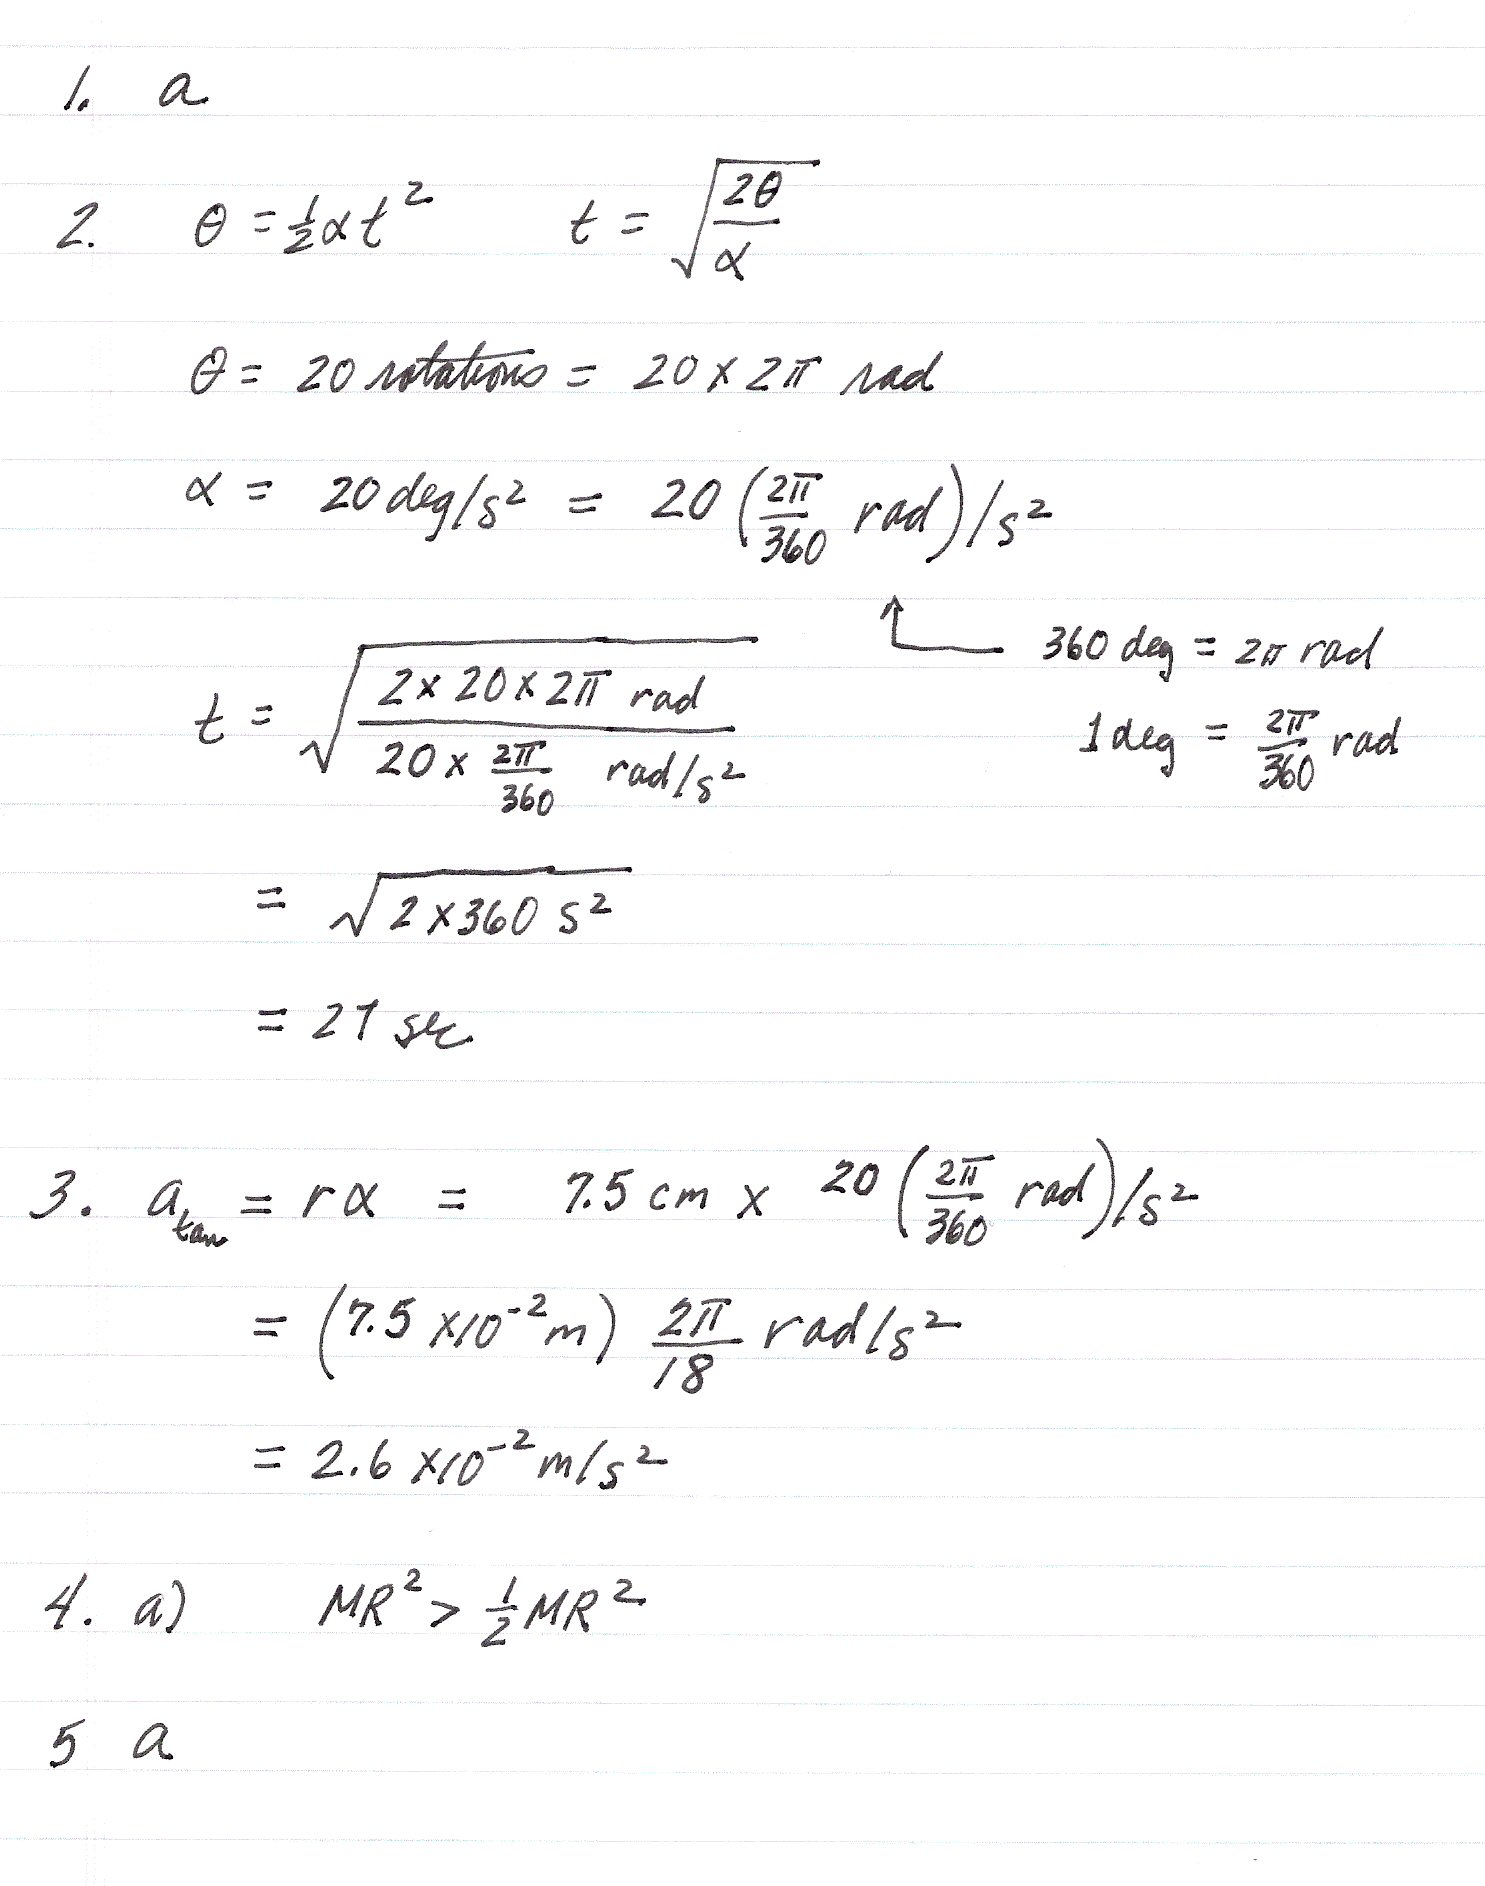 1. a
2. θ = ½αt² t = √(2θ/α)
θ = 20 rotations = 20 × 2π rad
α = 20 deg/s² = 20 (2π/360 rad)/s²
360 deg = 2π rad
t = √(2 × 20 × 2π rad / 20 × 2π/360 rad/s²)
1 deg = 2π/360 rad
= √(2 × 360 s²)
= 27 sec
3. a_tan = rα = 7.5 cm × 20 (2π/360 rad)/s²
= (7.5 × 10⁻² m) 2π/18 rad/s²
= 2.6 × 10⁻² m/s²
4. a) MR² > ½MR²
5 a